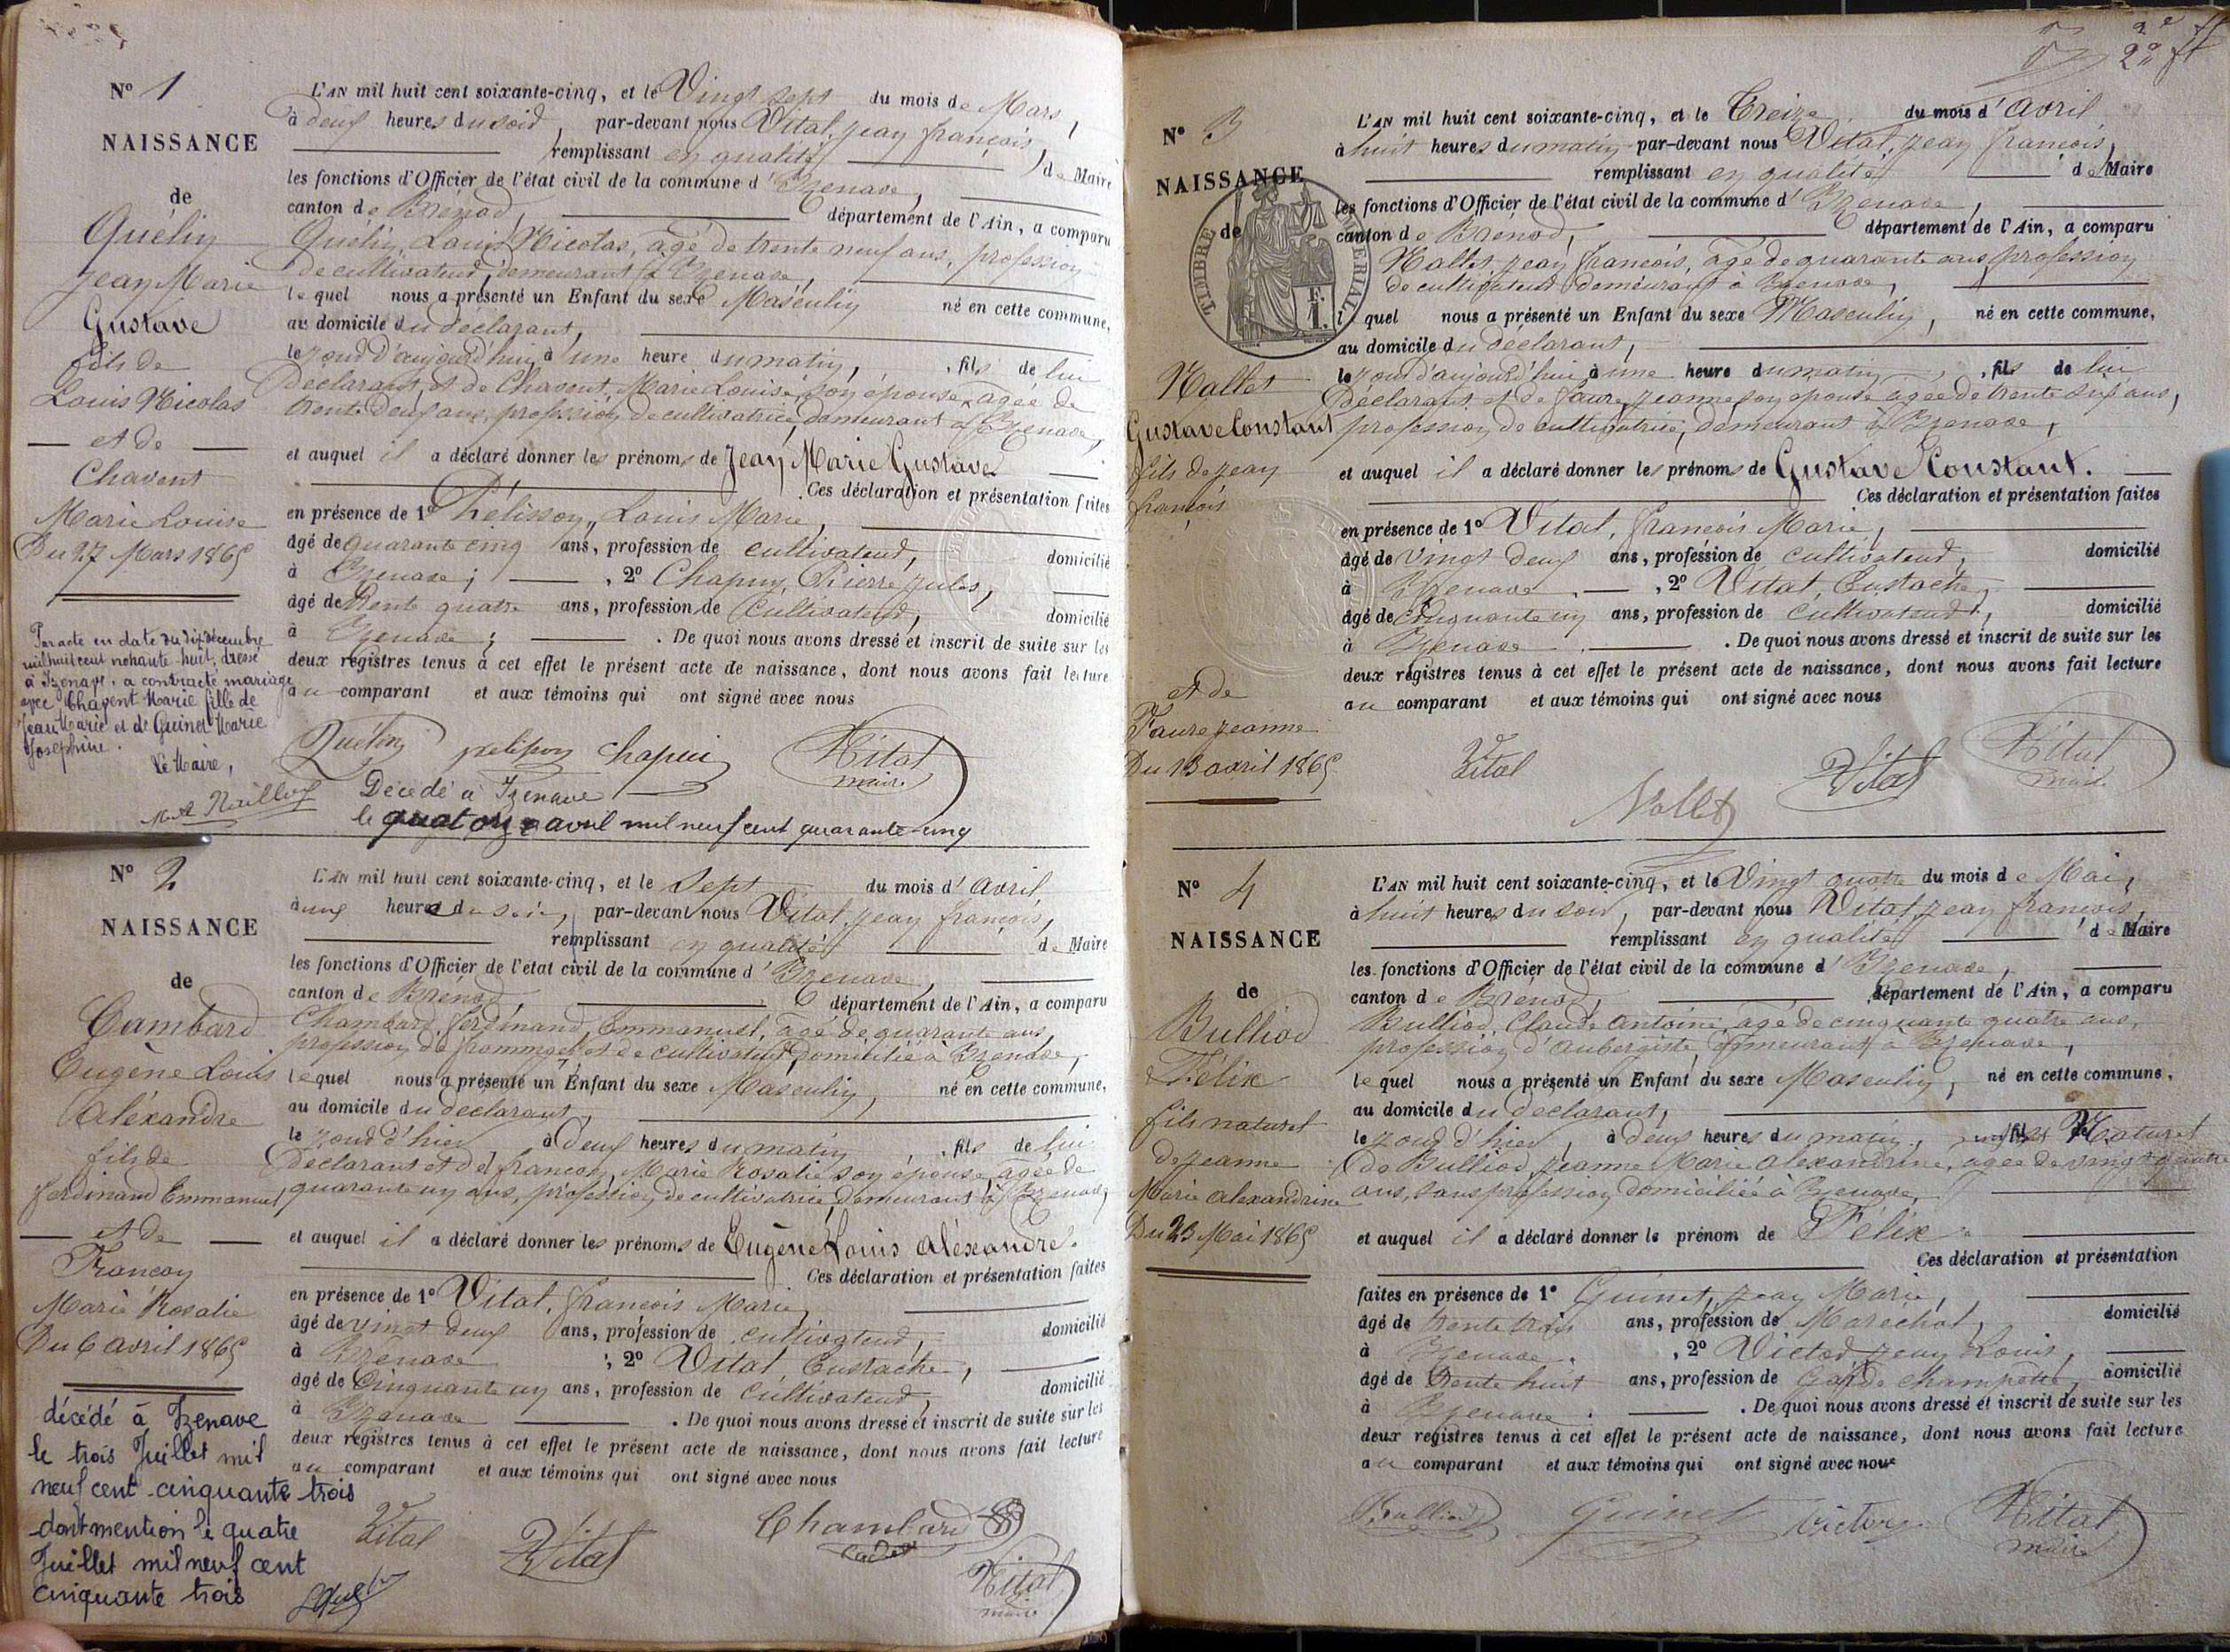 N° 1
NAISSANCE
de
Quélin
Jean Marie
Gustave
fils de
Louis Nicolas
et de
Chavent
Marie Louise
Du 27 Mars 1865
Par acte en date du dix décembre
mil huit cent nonante-huit, dressé
à Izenave, a contracté mariage
avec Chavent Marie fille de
Jean Marie et de Guinet Marie
Josephine.
Le Maire,
L'AN mil huit cent soixante-cinq, et le Vingt sept du mois de Mars,
à deux heures du soir, par-devant nous Vital, Jean françois,
remplissant en qualité de Maire
les fonctions d'Officier de l'état civil de la commune d'Izenave,
canton de Brénod, département de l'Ain, a comparu
Quélin, Louis Nicolas, âgé de trente neuf ans, profession
de cultivateur, demeurant à Izenave,
lequel nous a présenté un Enfant du sexe Masculin né en cette commune,
au domicile du déclarant,
le jour d'aujourd'hui, à une heure du matin, fils de lui
déclarant, et de Chavent, Marie Louise, son épouse, agée de
trente deux ans, profession de cultivatrice, demeurant à Izenave,
et auquel il a déclaré donner les prénoms de Jean Marie Gustave
Ces déclaration et présentation faites
en présence de 1° Pélisson, Louis Marie,
âgé de quarante cinq ans, profession de cultivateur, domicilié
à Izenave; , 2° Chapuy, Pierre Jules,
âgé de trente quatre ans, profession de cultivateur, domicilié
à Izenave; . De quoi nous avons dressé et inscrit de suite sur les
deux registres tenus à cet effet le présent acte de naissance, dont nous avons fait lecture
au comparant et aux témoins qui ont signé avec nous
Quélin pelisson chapui Vital
maire
Décédé à Izenave
le quatorze avril mil neuf cent quarante-cinq
N° 2
NAISSANCE
de
Cambard
Eugène Louis
Aléxandre
fils de
ferdinand Emmanuel
et de
Françon
Marie Rosalie
Du 6 avril 1865
décédé à Izenave
le trois Juillet mil
neuf cent cinquante trois
dont mention le quatre
Juillet mil neuf cent
cinquante trois
L'AN mil huit cent soixante-cinq, et le Sept du mois d'Avril,
à une heure du soir, par-devant nous Vital, Jean françois,
remplissant en qualité de Maire
les fonctions d'Officier de l'état civil de la commune d'Izenave,
canton de Brénod, département de l'Ain, a comparu
Chambard, ferdinand, Emmanuel, âgé de quarante ans,
profession de frommager et de cultivateur, domicilié à Izenave,
lequel nous a présenté un Enfant du sexe Masculin, né en cette commune,
au domicile du déclarant,
le jour d'hier à deux heures du matin, fils de lui
déclarant et de françon, Marie Rosalie, son épouse, agée de
quarante un ans, profession de cultivatrice, demeurant à Izenave,
et auquel il a déclaré donner les prénoms de Eugène Louis Aléxandre.
Ces déclaration et présentation faites
en présence de 1° Vital, françois Marie,
âgé de vingt deux ans, profession de cultivateur, domicilié
à Izenave , 2° Vital, Eustache,
âgé de cinquante un ans, profession de cultivateur, domicilié
à Izenave . De quoi nous avons dressé et inscrit de suite sur les
deux registres tenus à cet effet le présent acte de naissance, dont nous avons fait lecture
au comparant et aux témoins qui ont signé avec nous
Vital Vital Chambard
cadet
Vital
maire
2e ft
N° 3
NAISSANCE
de
TIMBRE IMPERIAL
F.
1.
Nallet
Gustave Constant
fils de Jean
françois
et de
Faure Jeanne
Du 13 avril 1865
L'AN mil huit cent soixante-cinq, et le Treize du mois d'Avril
à huit heures du matin par-devant nous Vital, Jean françois,
remplissant en qualité de Maire
les fonctions d'Officier de l'état civil de la commune d'Izenave,
canton de Brénod, département de l'Ain, a comparu
Nallet, Jean françois, âgé de quarante ans, profession
de cultivateur demeurant à Izenave,
lequel nous a présenté un Enfant du sexe Masculin, né en cette commune,
au domicile du déclarant,
le jour d'aujourd'hui à une heure du matin, fils de lui
déclarant et de faure, Jeanne, son épouse agée de trente six ans,
profession de cultivatrice, demeurant à Izenave,
et auquel il a déclaré donner les prénoms de Gustave Constant.
Ces déclaration et présentation faites
en présence de 1° Vital, françois Marie,
âgé de vingt deux ans, profession de cultivateur, domicilié
à Izenave , 2° Vital, Eustache,
âgé de cinquante un ans, profession de cultivateur, domicilié
à Izenave . De quoi nous avons dressé et inscrit de suite sur les
deux registres tenus à cet effet le présent acte de naissance, dont nous avons fait lecture
au comparant et aux témoins qui ont signé avec nous
Vital Nallet Vital Vital
maire
N° 4
NAISSANCE
de
Bulliod
Félix
fils naturel
de Jeanne
Marie Alexandrine
Du 23 Mai 1865
L'AN mil huit cent soixante-cinq, et le Vingt quatre du mois de Mai,
à huit heures du soir, par-devant nous Vital, Jean françois,
remplissant en qualité de Maire
les fonctions d'Officier de l'état civil de la commune d'Izenave,
canton de Brénod, département de l'Ain, a comparu
Bulliod, Claude Antoine, agé de cinquante quatre ans,
profession d'aubergiste, demeurant à Izenave,
lequel nous a présenté un Enfant du sexe Masculin, né en cette commune,
au domicile du déclarant,
le jour d'hier, à deux heures du matin, fils Naturel
de Bulliod, Jeanne Marie Alexandrine, agée de vingt quatre
ans, sans profession, domiciliée à Izenave,
et auquel il a déclaré donner le prénom de Félix
Ces déclaration et présentation
faites en présence de 1° Guinet, Jean Marie,
âgé de trente trois ans, profession de Maréchal, domicilié
à Izenave. , 2° Victor, Jean Louis,
âgé de trente huit ans, profession de Garde champêtre, domicilié
à Izenave . De quoi nous avons dressé et inscrit de suite sur les
deux registres tenus à cet effet le présent acte de naissance, dont nous avons fait lecture
au comparant et aux témoins qui ont signé avec nous
Bulliod Guinet Victor Vital
maire